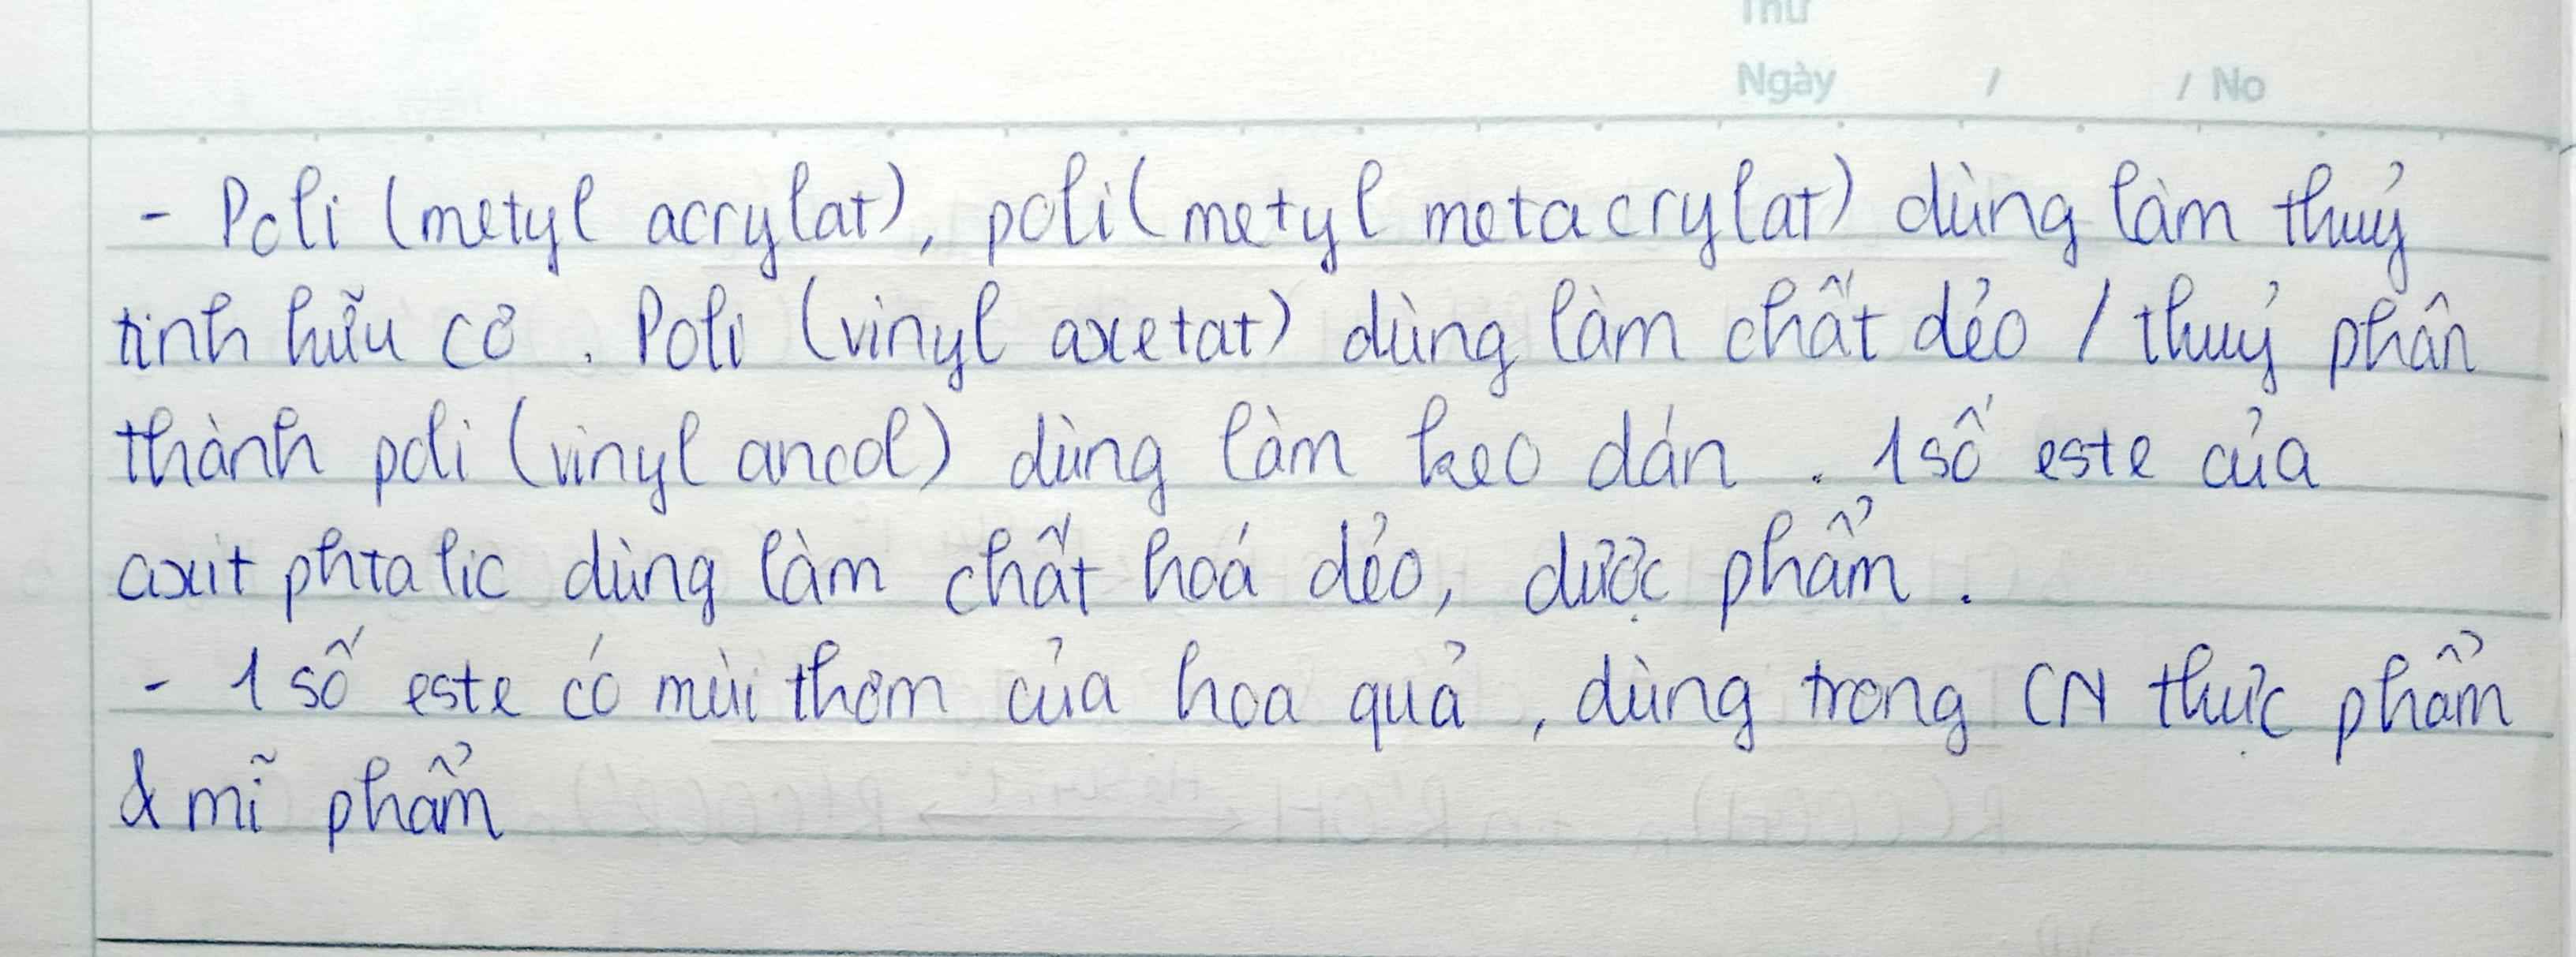 Thứ
Ngày / / No
- Poli (metyl acrylat), poli (metyl metacrylat) dùng làm thuỷ
tinh hữu cơ . Poli (vinyl axetat) dùng làm chất dẻo / thuỷ phân
thành poli (vinyl ancol) dùng làm keo dán . 1 số este của
axit phtalic dùng làm chất hoá dẻo, dược phẩm .
- 1 số este có mùi thơm của hoa quả , dùng trong CN thực phẩm
& mĩ phẩm